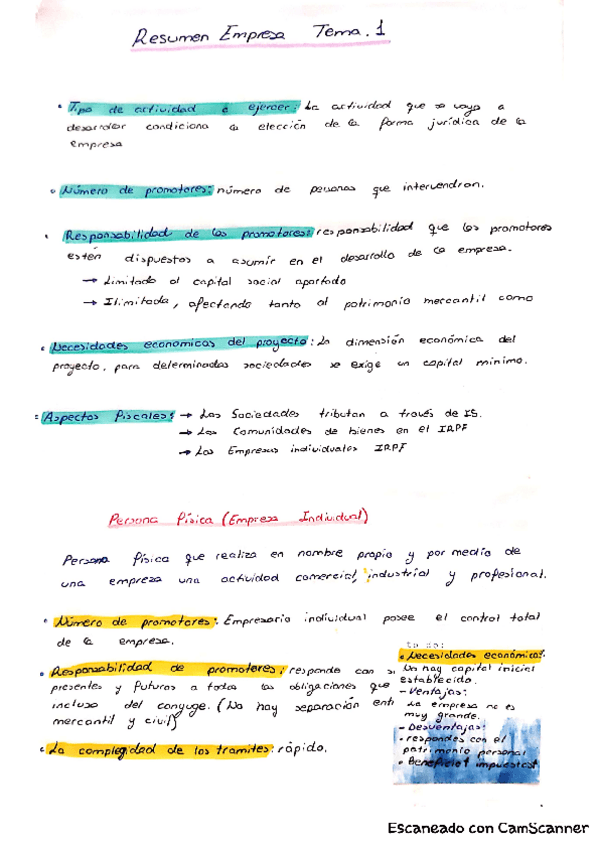 Resumen Empresa Tema. 1
• Tipo de actividad a ejercer: La actividad que se vaya a
desarrollar condiciona la elección de la forma jurídica de la
empresa
• Número de promotores: número de personas que intervendran.
• Responsabilidad de los promotores: responsabilidad que los promotores
estén dispuestos a asumir en el desarrollo de la empresa.
→ Limitada al capital social aportado
→ Ilimitada, afectando tanto al patrimonio mercantil como
• Necesidades economicas del proyecto: La dimensión económica del
proyecto. para determinadas sociedades se exige un capital mínimo.
• Aspectos Fiscales: → Las Sociedades tributan a través de IS.
→ Las Comunidades de bienes en el IRPF
→ Las Empresas individuales IRPF
Persona física (Empresa Individual)
Persona física que realiza en nombre propio y por medio de
una empresa una actividad comercial, industrial y profesional.
• Número de promotores: Empresario individual posee el control total
de la empresa.
• Responsabilidad de promotores: responde con s
presentes y futuros a todas las obligaciones que
incluso del conyuge. (No hay separación ent
mercantil y civil)
• La complegidad de los tramites: rápido.
• Necesidades económicas:
No hay capital inicial
establecido.
- Ventajas:
La empresa no es
muy grande.
- Desventajas:
- respondes con el
patrimonio personal
• Beneficio↑ impuestos↑
Escaneado con CamScanner